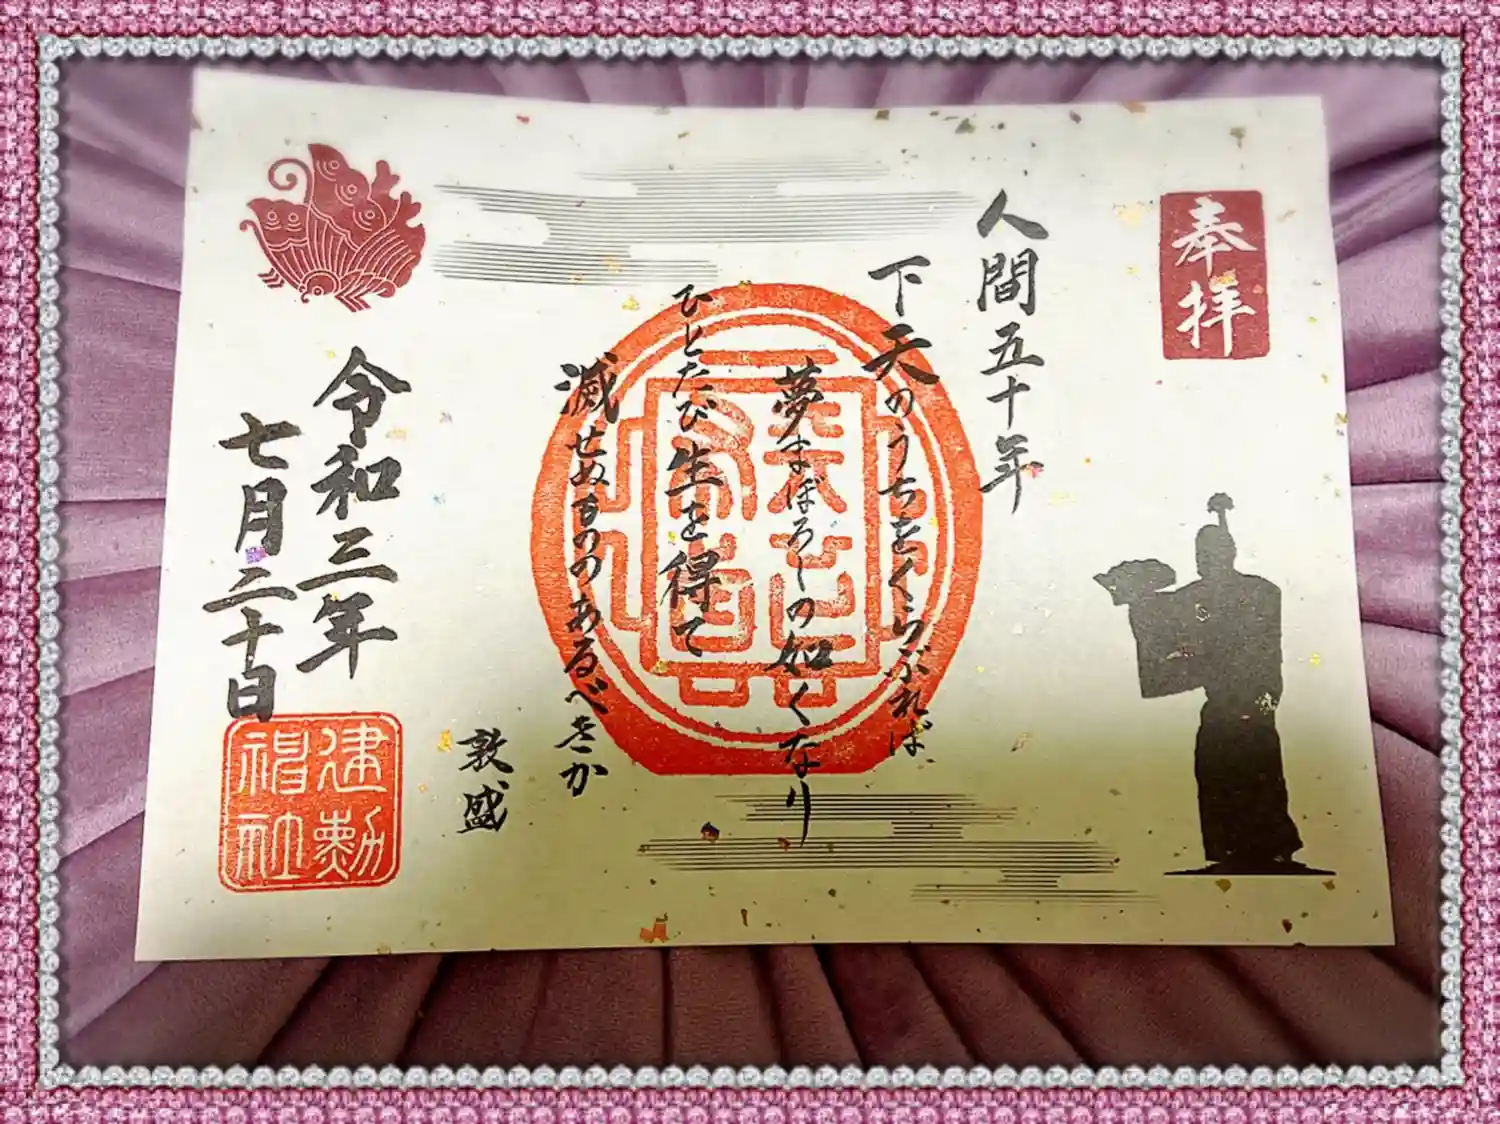 奉拝
人間五十年
下天のうちをくらぶれば
夢まぼろしの如くなり
ひとたび生を得て
滅せぬもののあるべきか
敦盛
令和三年
七月二十日
建勲
神社